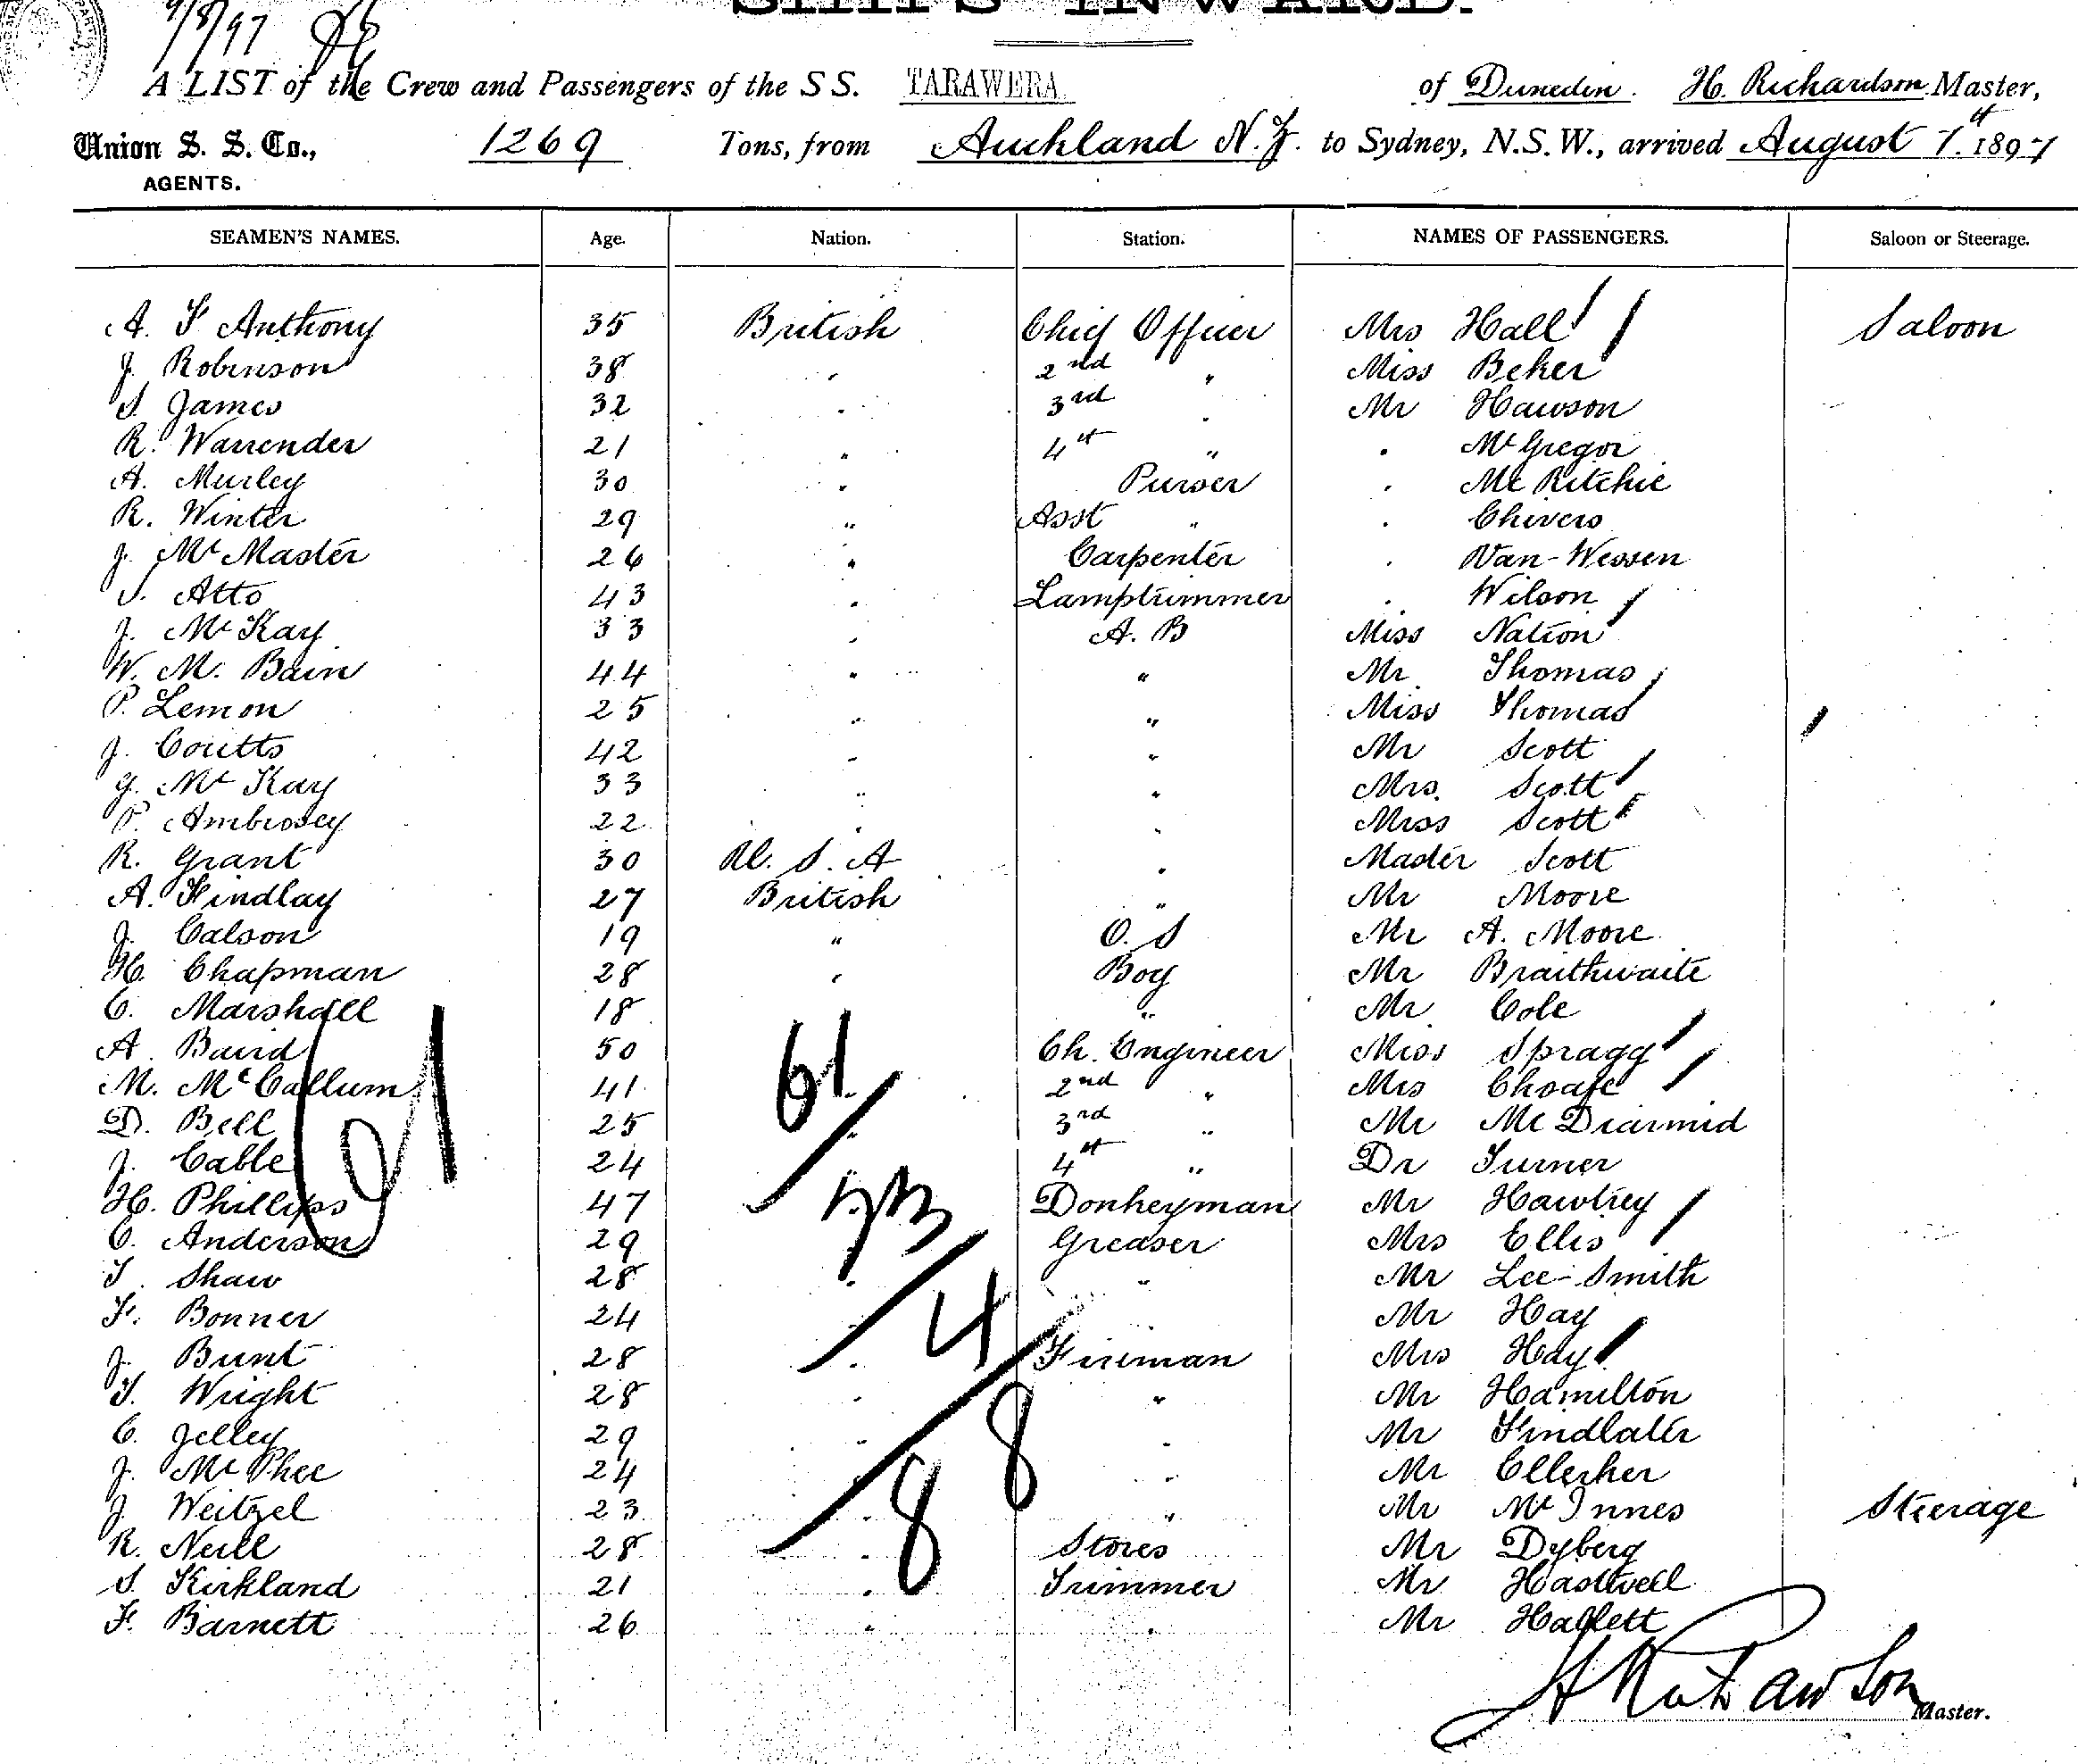 SHIPS INWARD.
9/8/97
A LIST of the Crew and Passengers of the S S. TARAWERA of Dunedin. H. Richardson Master,
Union S. S. Co., 1269 Tons, from Auckland N.Z. to Sydney, N.S.W., arrived August 7th 1897
AGENTS.
SEAMEN'S NAMES. Age. Nation. Station. NAMES OF PASSENGERS. Saloon or Steerage.
A. F Anthony 35 British Chief Officer Mrs Hall Saloon
J. Robinson 38 " 2nd " Miss Beker
S. James 32 " 3rd " Mr Hawson
R. Warrender 21 " 4th " " McGregor
A. Murley 30 " Purser " Mc Ritchie
R. Winter 29 " Asst " " Chivers
J. McMaster 26 " Carpenter " Van-Wessen
S. Atto 43 " Lamptrimmer " Wilson
J. McKay 33 " A. B Miss Nation
W. M. Bain 44 " " Mr Thomas
P. Lemon 25 " " Miss Thomas
J. Coutts 42 " " Mr Scott
G. McKay 33 " " Mrs. Scott
P. Ambrosey 22 " " Miss Scott
R. Grant 30 U. S. A " Master Scott
A. Findlay 27 British " Mr Moore
J. Calson 19 " O. S Mr A. Moore
H. Chapman 28 " Boy Mr Braithwaite
C. Marshall 18 " Mr Cole
A. Baird 50 Ch. Engineer Miss Spragg
M. McCallum 41 2nd " Mrs Choafe
D. Bell 25 " 3rd " Mr Mc Diarmid
J. Cable 24 " 4th " Dr Turner
H. Phillips 47 " Donkeyman Mr Hawtrey
C. Anderson 29 Greaser Mrs Ellis
T. Shaw 28 " " Mr Lee-Smith
F. Bonner 24 " " Mr Hay
J. Bunt 28 " Fireman Mrs Hay
T. Wright 28 " " Mr Hamilton
C. Jelley 29 " " Mr Findlater
J. McPhee 24 " " Mr Ellerker
J. Weitzel 23 " " Mr McInnes Steerage
R. Neill 28 " Stores Mr Dyberg
S. Kirkland 21 " Trimmer Mr Hastwell
F. Barnett 26 " " Mr Hallett
61
4
8
8
H Richardson Master.